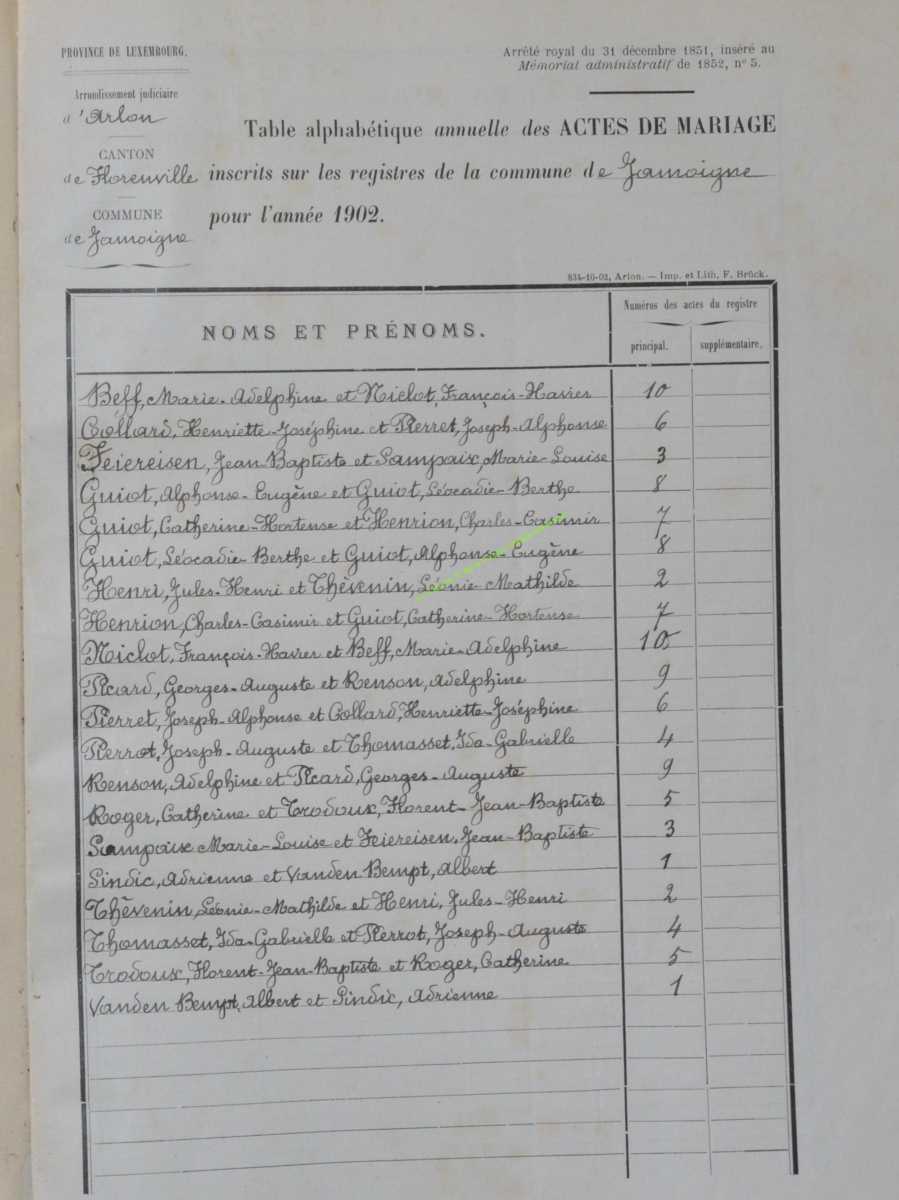 PROVINCE DE LUXEMBOURG.
Arrondissement judiciaire
d'Arlon
CANTON
de Florenville
COMMUNE
de Jamoigne
Arrêté royal du 31 décembre 1851, inséré au
Mémorial administratif de 1852, n° 5.
Table alphabétique annuelle des ACTES DE MARIAGE
inscrits sur les registres de la commune de Jamoigne
pour l'année 1902.
834-10-02, Arlon. — Imp. et Lith. F. Brück.
NOMS ET PRÉNOMS.
Numéros des actes du registre
principal. supplémentaire.
Beff, Marie-Adelphine et Niclot, François-Xavier 10
Collard, Henriette-Joséphine et Pierret, Joseph-Alphonse 6
Feiereisen, Jean Baptiste et Sampaix, Marie-Louise 3
Guiot, Alphonse-Eugène et Guiot, Léocadie-Berthe 8
Guiot, Catherine-Hortense et Henrion, Charles-Casimir 7
Guiot, Léocadie-Berthe et Guiot, Alphonse-Eugène 8
Henri, Jules-Henri et Thèvenin, Léonie-Mathilde 2
Henrion, Charles-Casimir et Guiot, Catherine-Hortense 7
Niclot, François-Xavier et Beff, Marie-Adelphine 10
Picard, Georges-Auguste et Renson, Adelphine 9
Pierret, Joseph-Alphonse et Collard, Henriette-Joséphine 6
Pierrot, Joseph-Auguste et Thomasset, Ida-Gabrielle 4
Renson, Adelphine et Picard, Georges-Auguste 9
Roger, Catherine et Trodoux, Florent-Jean-Baptiste 5
Sampaix Marie-Louise et Feiereisen, Jean-Baptiste 3
Sindic, Adrienne et Vanden Bempt, Albert 1
Thèvenin, Léonie-Mathilde et Henri, Jules-Henri 2
Thomasset, Ida-Gabrielle et Pierrot, Joseph-Auguste 4
Trodoux, Florent-Jean-Baptiste et Roger, Catherine 5
Vanden Bempt, Albert et Sindic, Adrienne 1